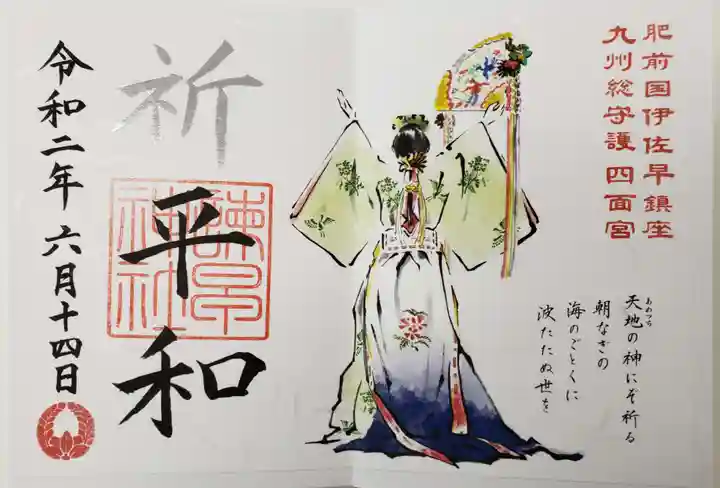 肥前国伊佐早鎮座
九州総守護 四面宮
天地の神にぞ祈る
あめつち
朝なぎの
海のごとくに
波たたぬ世を
祈
平和
諫早神社
令和二年 六月十四日